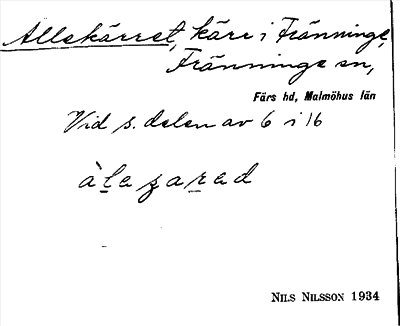 Allekärret, kärr i Fränninge,
Fränninge sn,
Färs hd, Malmöhus län
Vid s. delen av 6 i 16
NILS NILSSON 1934